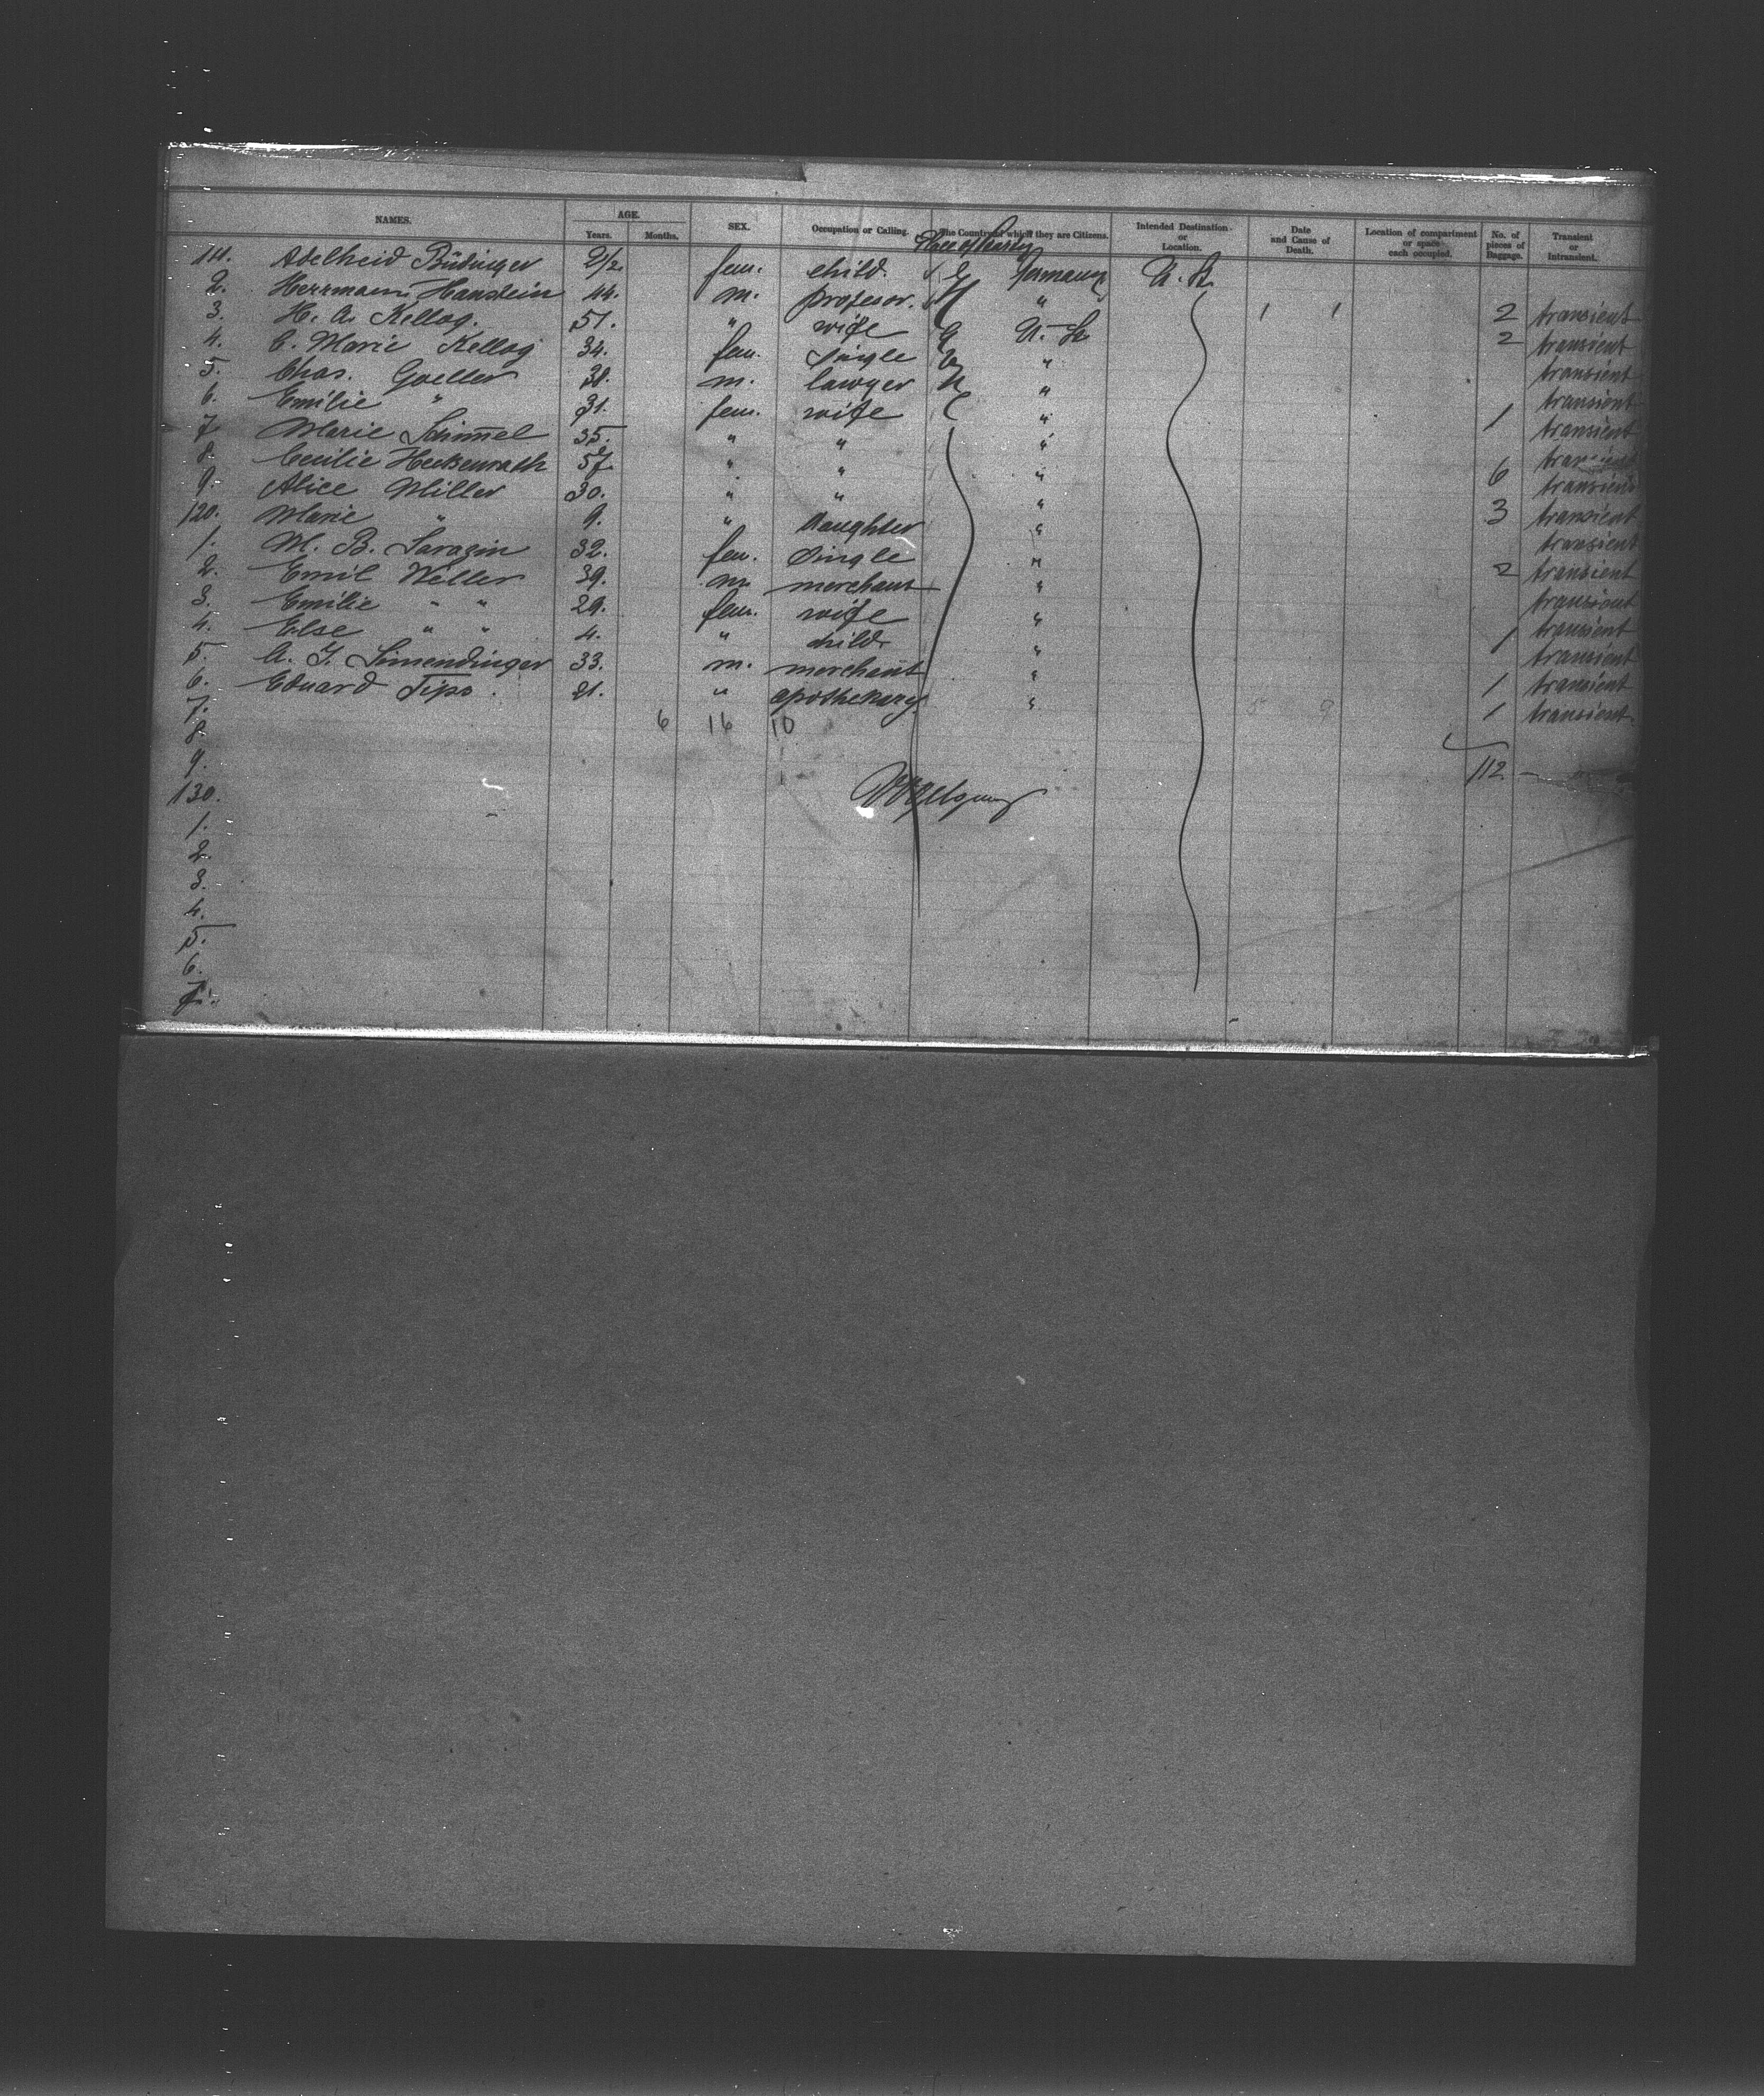 NAMES. AGE. Years. Months. SEX. Occupation or Calling. The Country of which they are Citizens. Intended Destination or Location. Date and Cause of Death. Location of compartment or space each occupied. No. of pieces of Baggage. Transient or Intransient.
111. Adelheid Büdinger 2 1/2 fem. child. Germany U. St.
2. Herrmann Hanstein 44. m. profesor. " 2 transient
3. H. A. Kellog. 51. " wife U. St. 2 transient
4. C. Marie Kellog 34. fem. single " transient
5. Chas. Goeller 38. m. lawyer " transient
6. Emilie " 31. fem. wife " 1 transient
7. Marie Schimmel 35. " " " transient
8. Cecilie Heckenrath 57. " " " 6 transient
9. Alice Miller 30. " " " 3 transient
120. Marie " 9. " daughter " transient
1. M. B. Sarazin 32. fem. single " 2 transient
2. Emil Weller 39. m. merchant " transient
3. Emilie " " 29. fem. wife " transient
4. Else " " 4. " child " 1 transient
5. A. J. Simendinger 33. m. merchant " 1 transient
6. Eduard Tips. 21. " apothekary " 1 transient.
7. 6 16 10 5 9
8.
9. 112
130.
1.
2.
3.
4.
5.
6.
7.